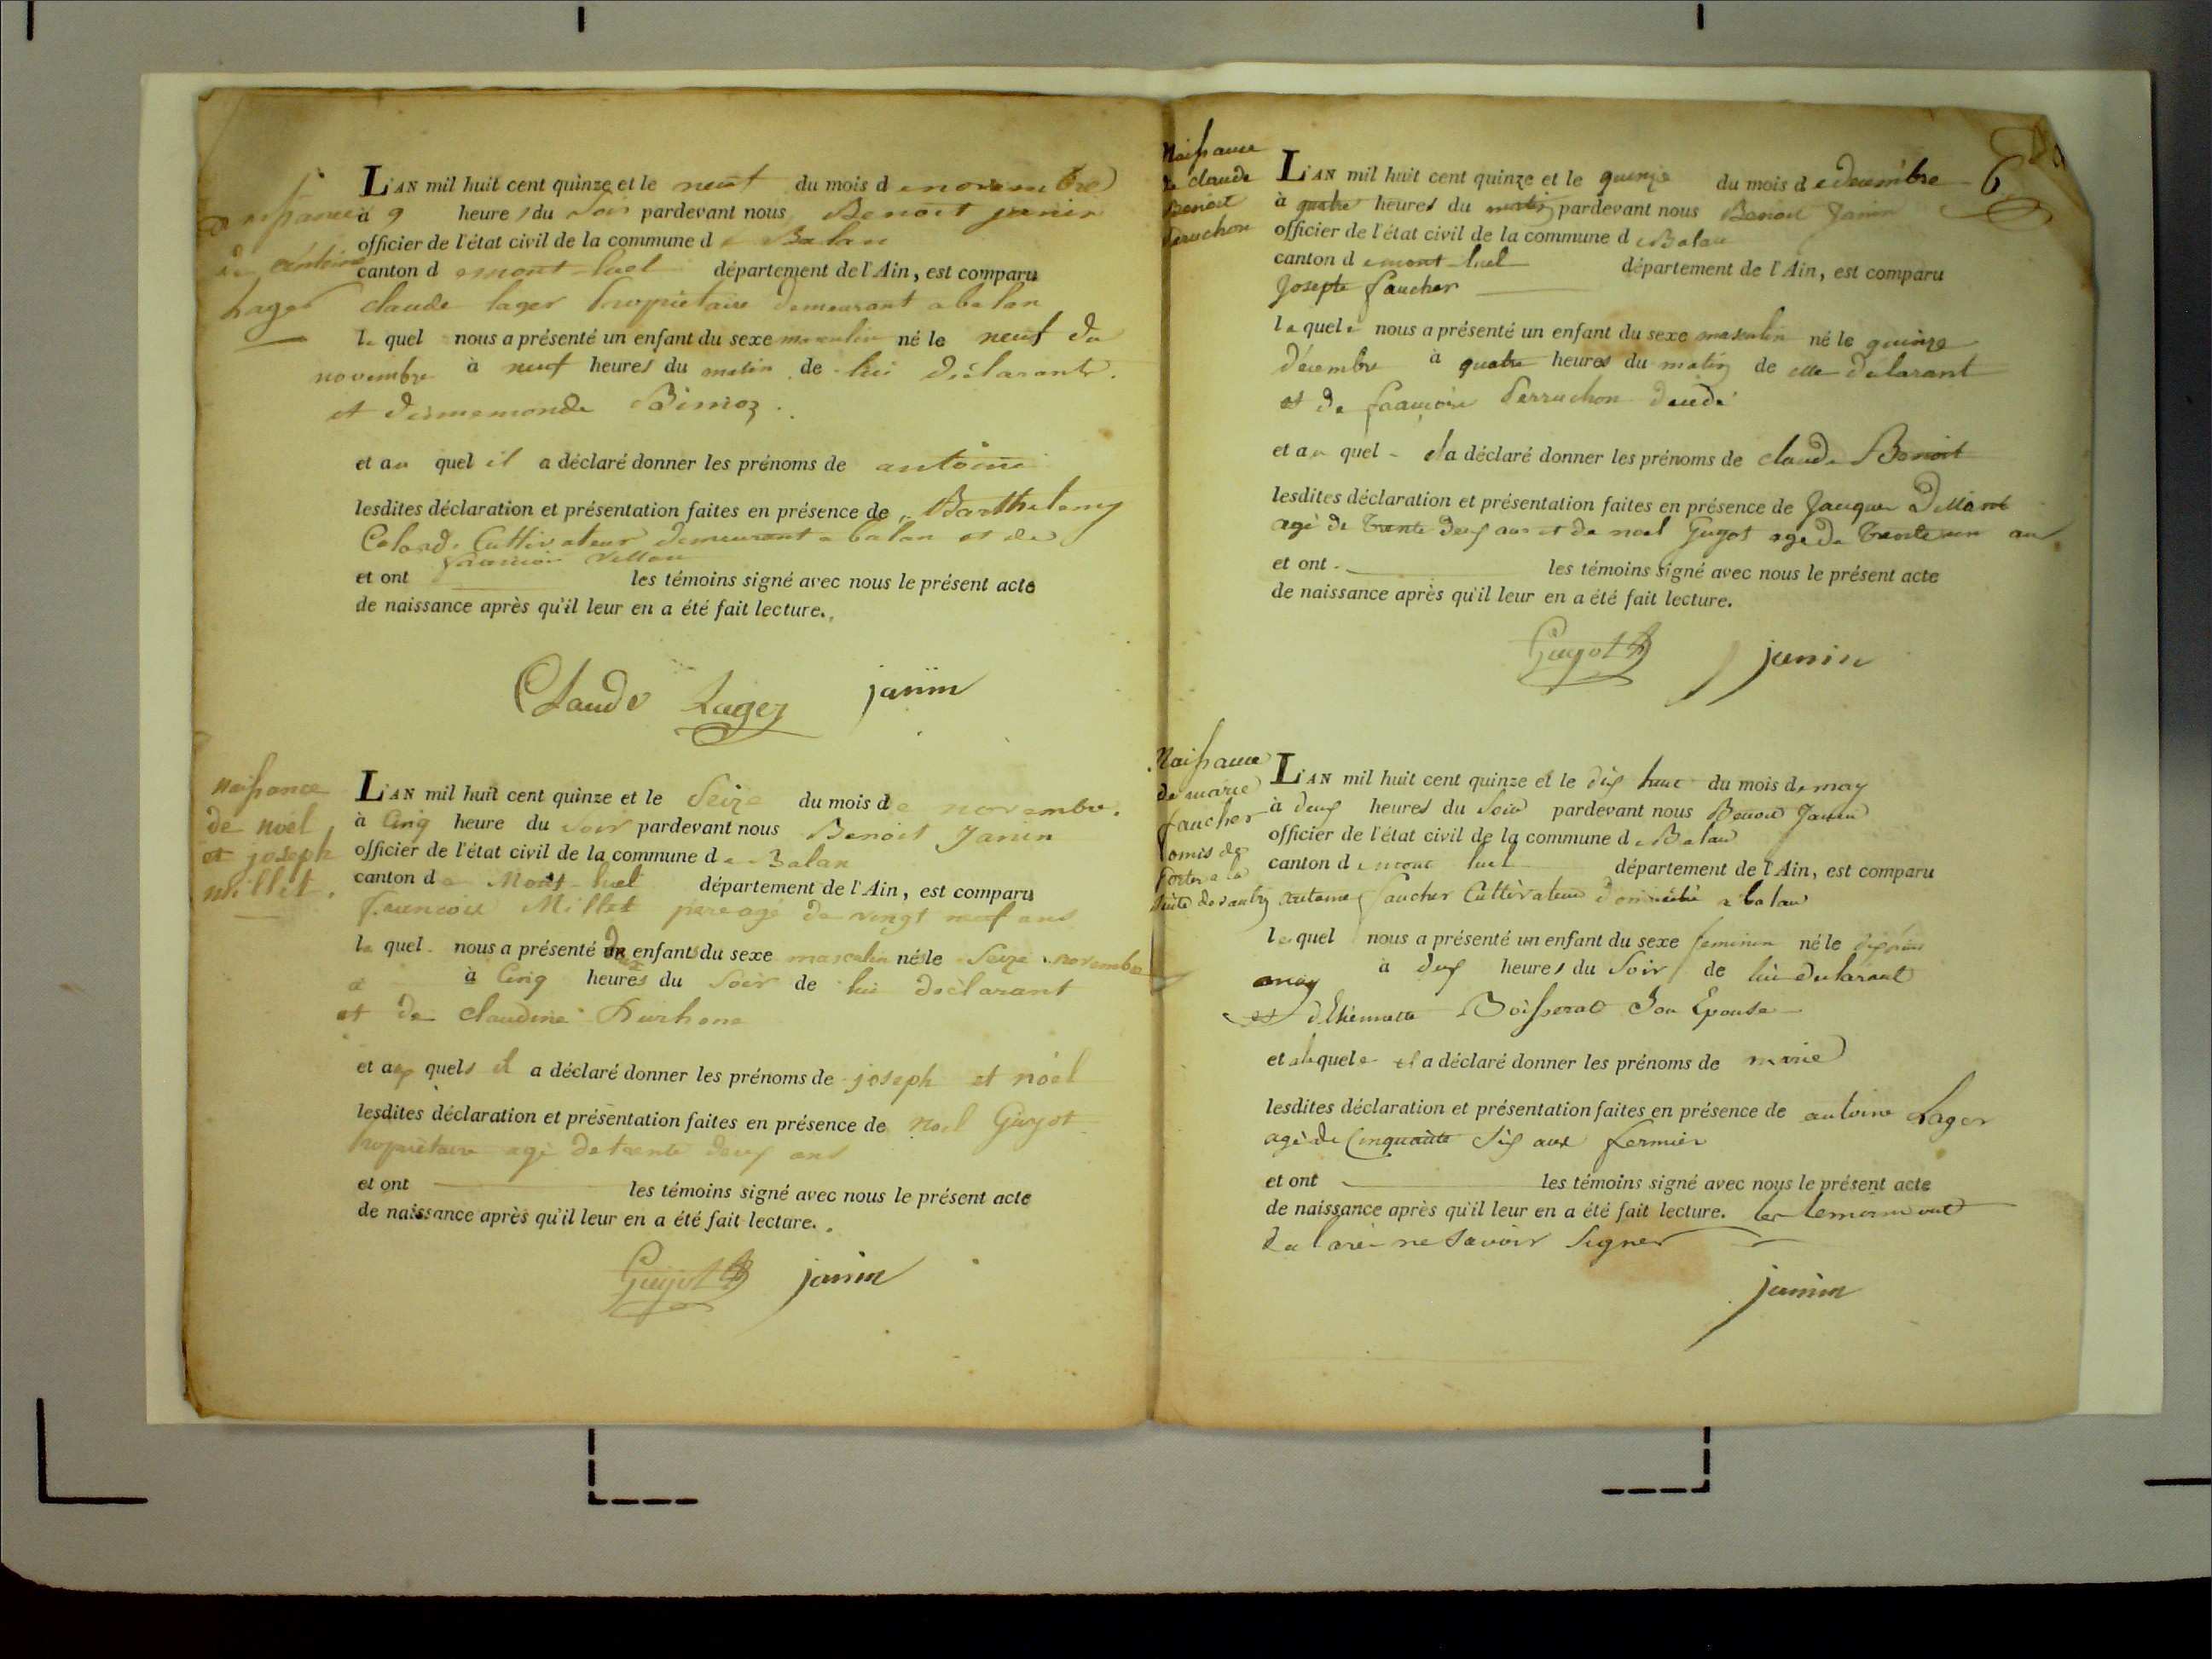 naissance
de Antoine
Lager
L'AN mil huit cent quinze et le neuf du mois de novembre
à 9 heures du soir pardevant nous Benoit janin
officier de l'état civil de la commune de Balan
canton de montluel département de l'Ain, est comparu
claude lager propriétaire demeurant a balan
lequel nous a présenté un enfant du sexe masculin né le neuf du
novembre à neuf heures du matin de lui déclarant
et
et au quel il a déclaré donner les prénoms de antoine
lesdites déclaration et présentation faites en présence de Barthelemy
Cultivateur demeurant a balan et de
et ont les témoins signé avec nous le présent acte
de naissance après qu'il leur en a été fait lecture.
Claude Lager janin
naissance
de noel
et joseph
millet.
L'AN mil huit cent quinze et le Seize du mois de novembre.
à Cinq heure du soir pardevant nous Benoit Janin
officier de l'état civil de la commune de Balan
canton de Mont-luel département de l'Ain, est comparu
francois Millet pere agé de vingt neuf ans
le quel nous a présenté deux enfants du sexe masculin nés le Seize novembre
à Cinq heures du Soir de lui déclarant
et de claudine
et aux quels il a déclaré donner les prénoms de joseph et noël
lesdites déclaration et présentation faites en présence de Noel Guyot
propriétaire agé de trente deux ans
et ont les témoins signé avec nous le présent acte
de naissance après qu'il leur en a été fait lecture.
Guyot janin
6
Naissance
de claude
Benoit
Peruchon
L'AN mil huit cent quinze et le quinze du mois de decembre
à quatre heures du matin pardevant nous Benoit Janin
officier de l'état civil de la commune de Balan
canton de mont-luel département de l'Ain, est comparu
Josepte faucher
laquele nous a présenté un enfant du sexe masculin né le quinze
décembre à quatre heures du matin de elle declarant
et de francoise Perruchon
et au quel ela déclaré donner les prénoms de claude Benoit
lesdites déclaration et présentation faites en présence de Jacques
agé de trente deux ans et de noel Guyot agé de trente un an
et ont les témoins signé avec nous le présent acte
de naissance après qu'il leur en a été fait lecture.
Guyot janin
Naissance
de marie
faucher
omis de
porter a la
suite de
L'AN mil huit cent quinze et le dix huit du mois de may
à deux heures du soir pardevant nous Benoit Janin
officier de l'état civil de la commune de Balan
canton de mont luel département de l'Ain, est comparu
antoine faucher Cultivateur domicilié a balan
lequel nous a présenté un enfant du sexe feminin né le
may à deux heures du Soir de lui declarant
et Son Epouse
et alaquele il a déclaré donner les prénoms de marie
lesdites déclaration et présentation faites en présence de antoine Lager
agé de Cinquante six ans fermier
et ont les témoins signé avec nous le présent acte
de naissance après qu'il leur en a été fait lecture. les temoins ont
declaré ne savoir signer
janin